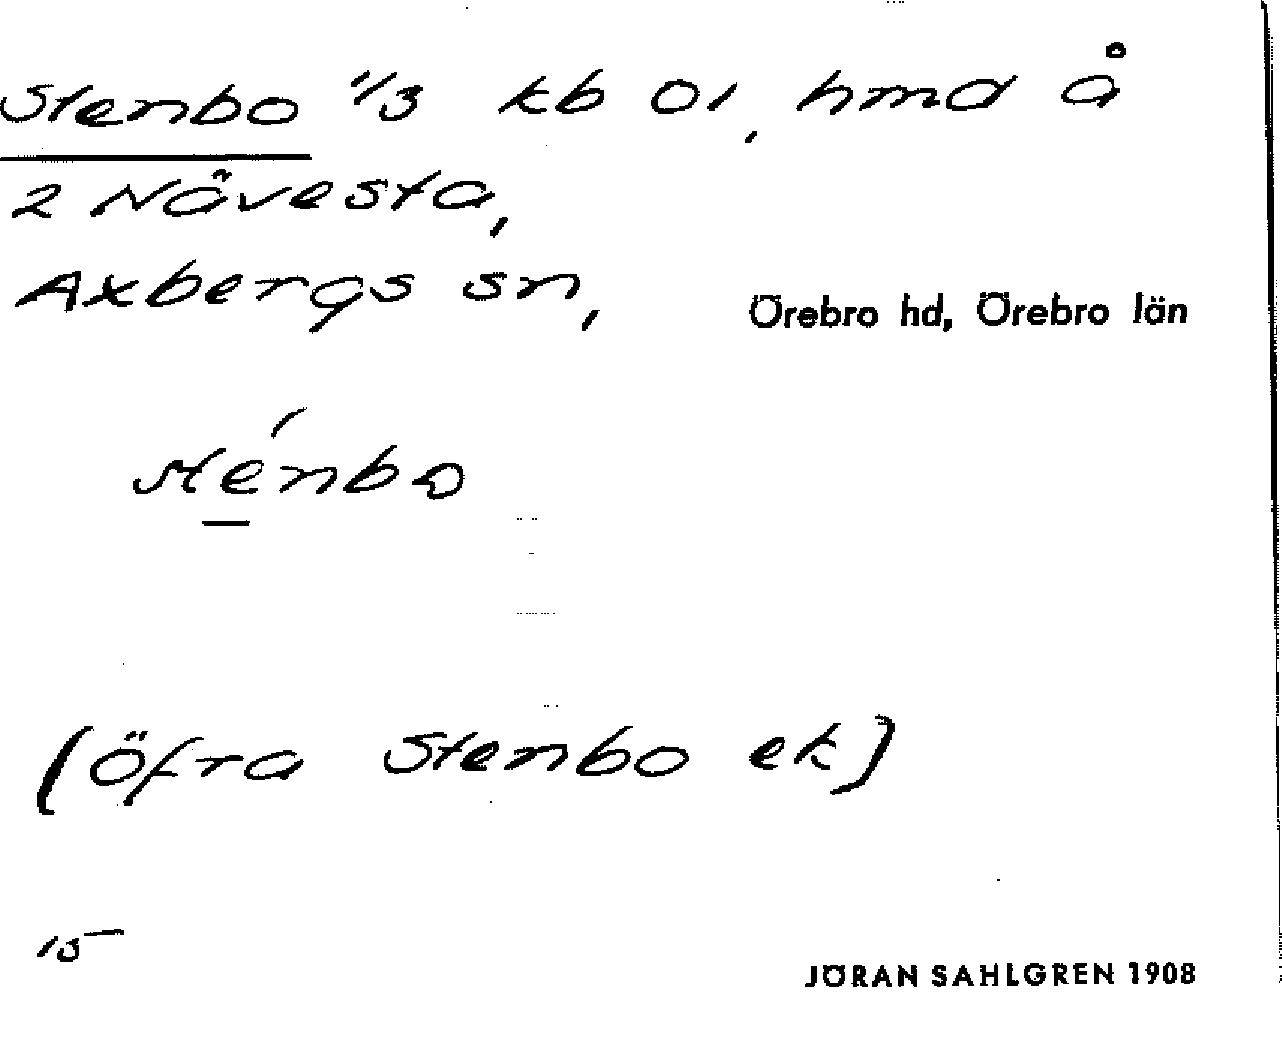 Stenbo 1/3 kb 01, hmd å
2 Nävesta,
Axbergs sn, Örebro hd, Örebro län
sténbo
(Öfra Stenbo ek)
15
JÖRAN SAHLGREN 1908